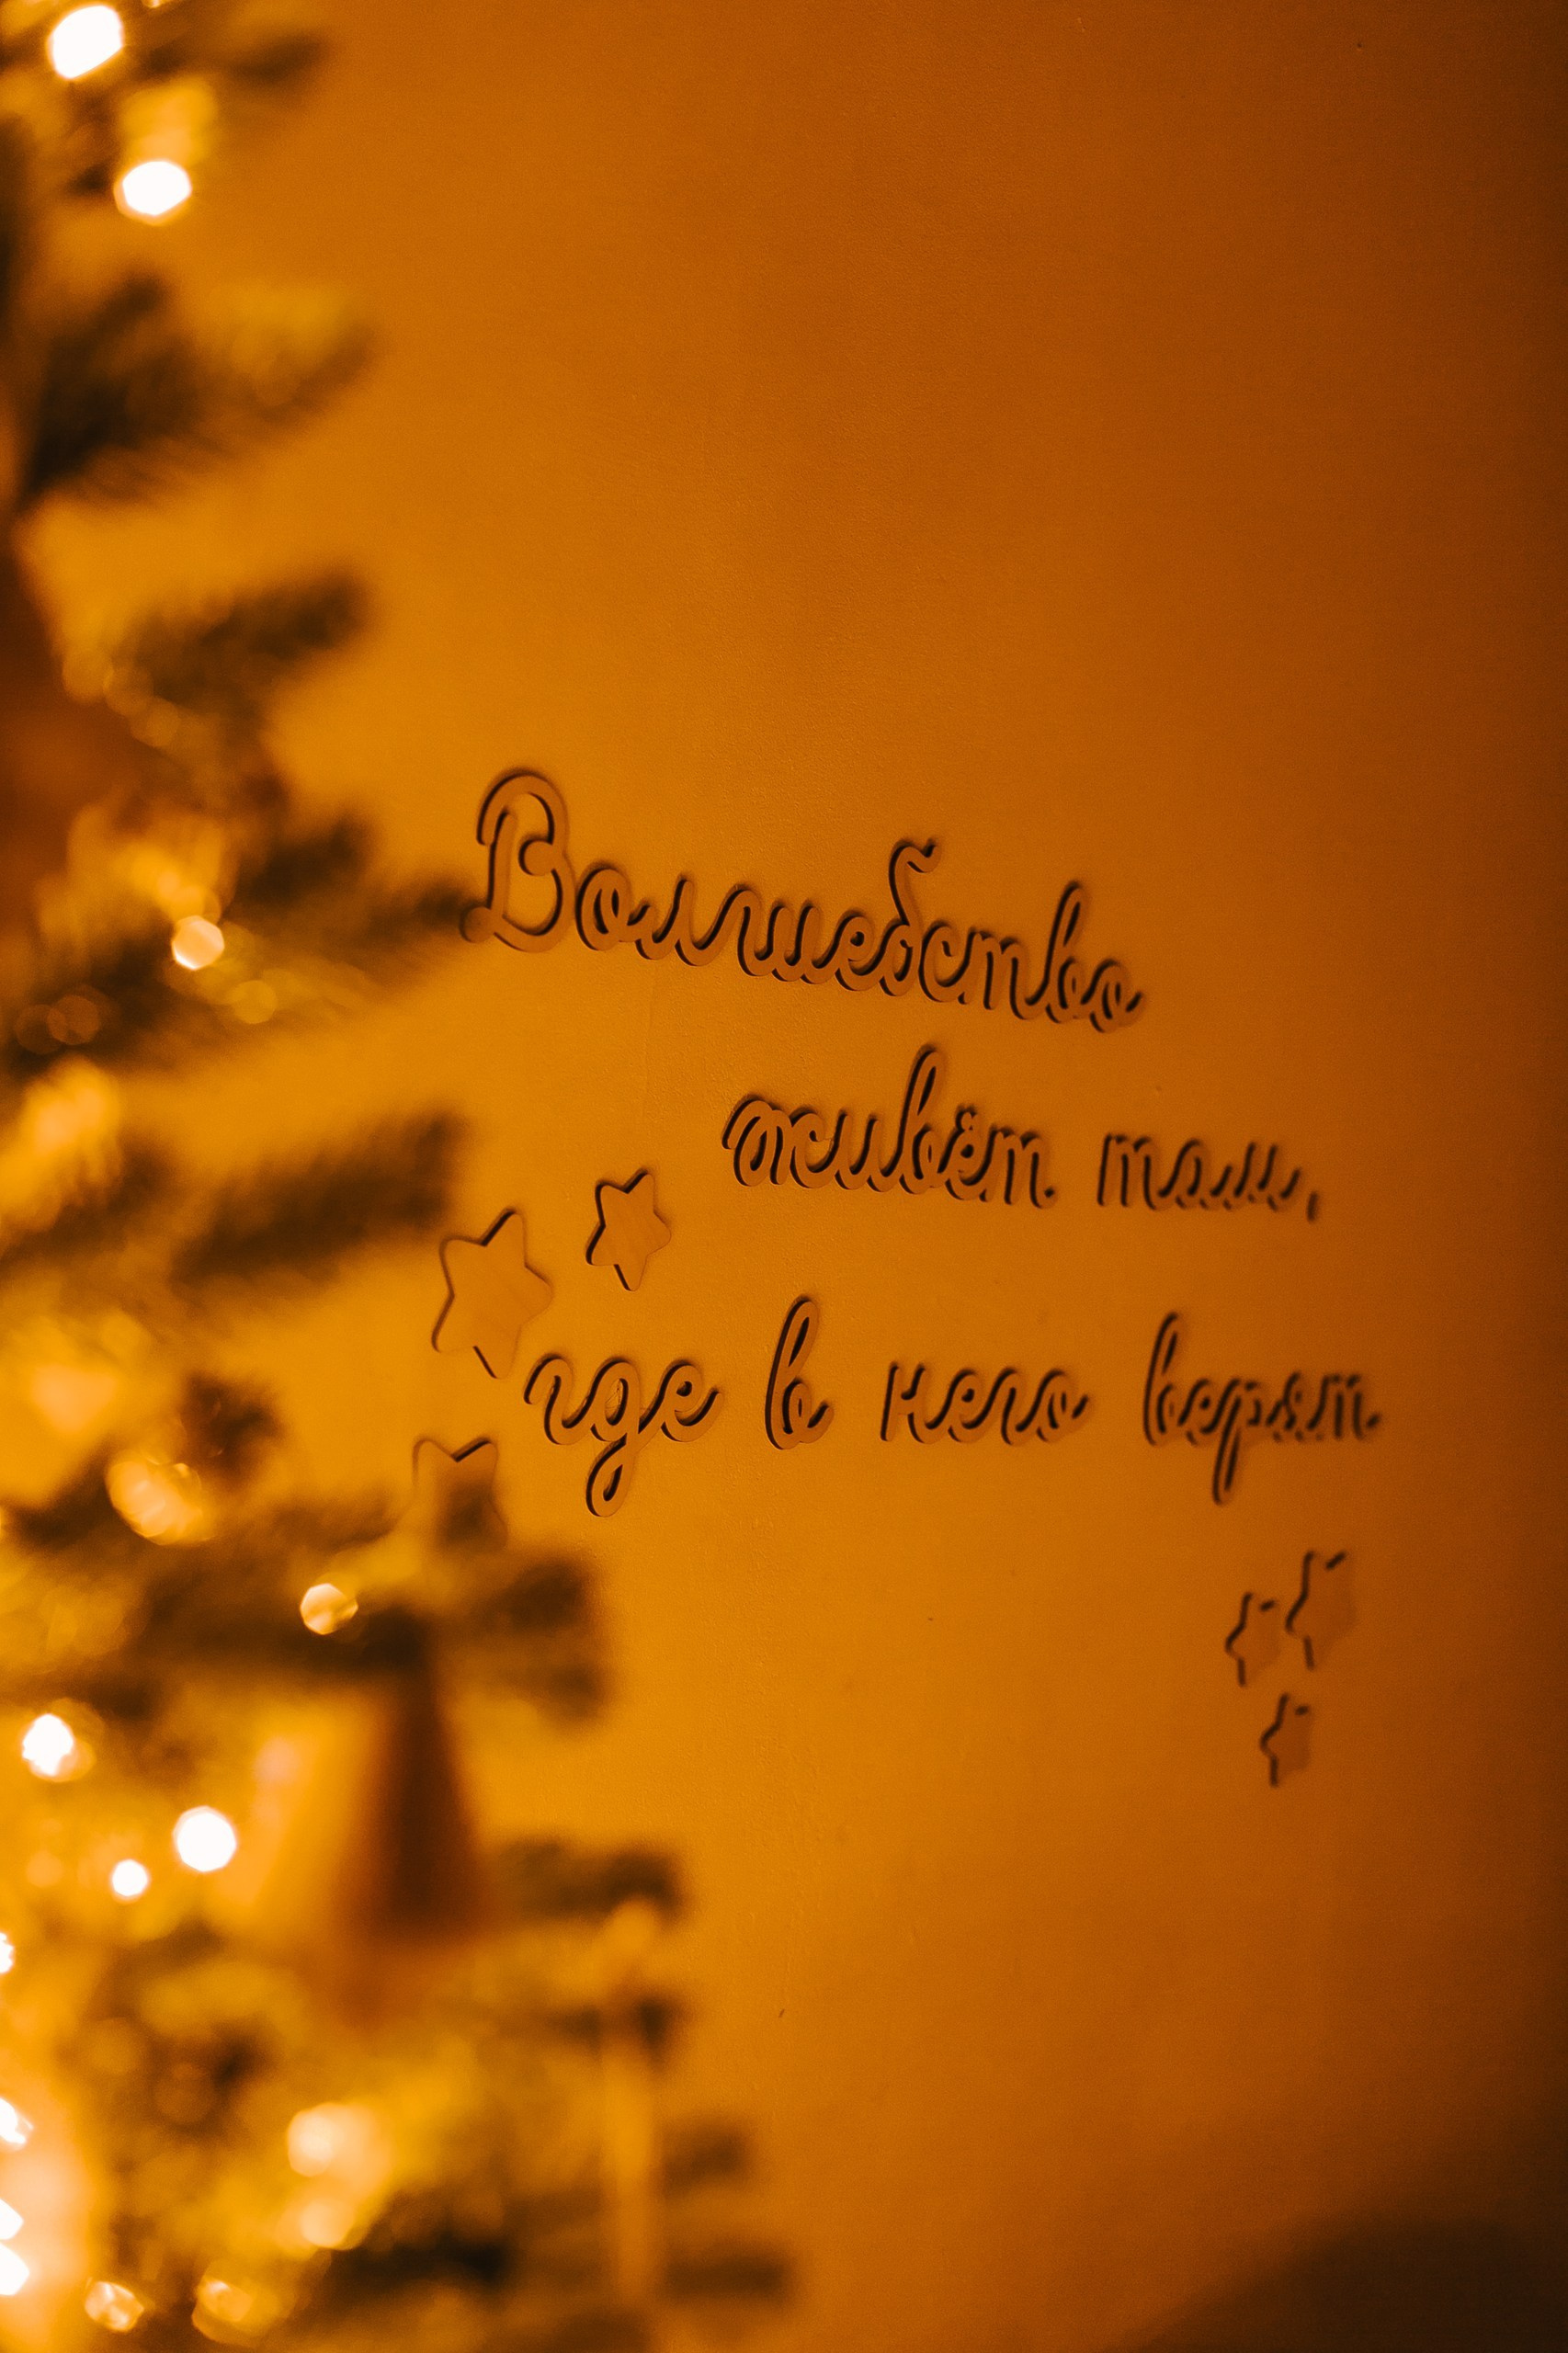 Волшебство
живёт там,
где в него верят